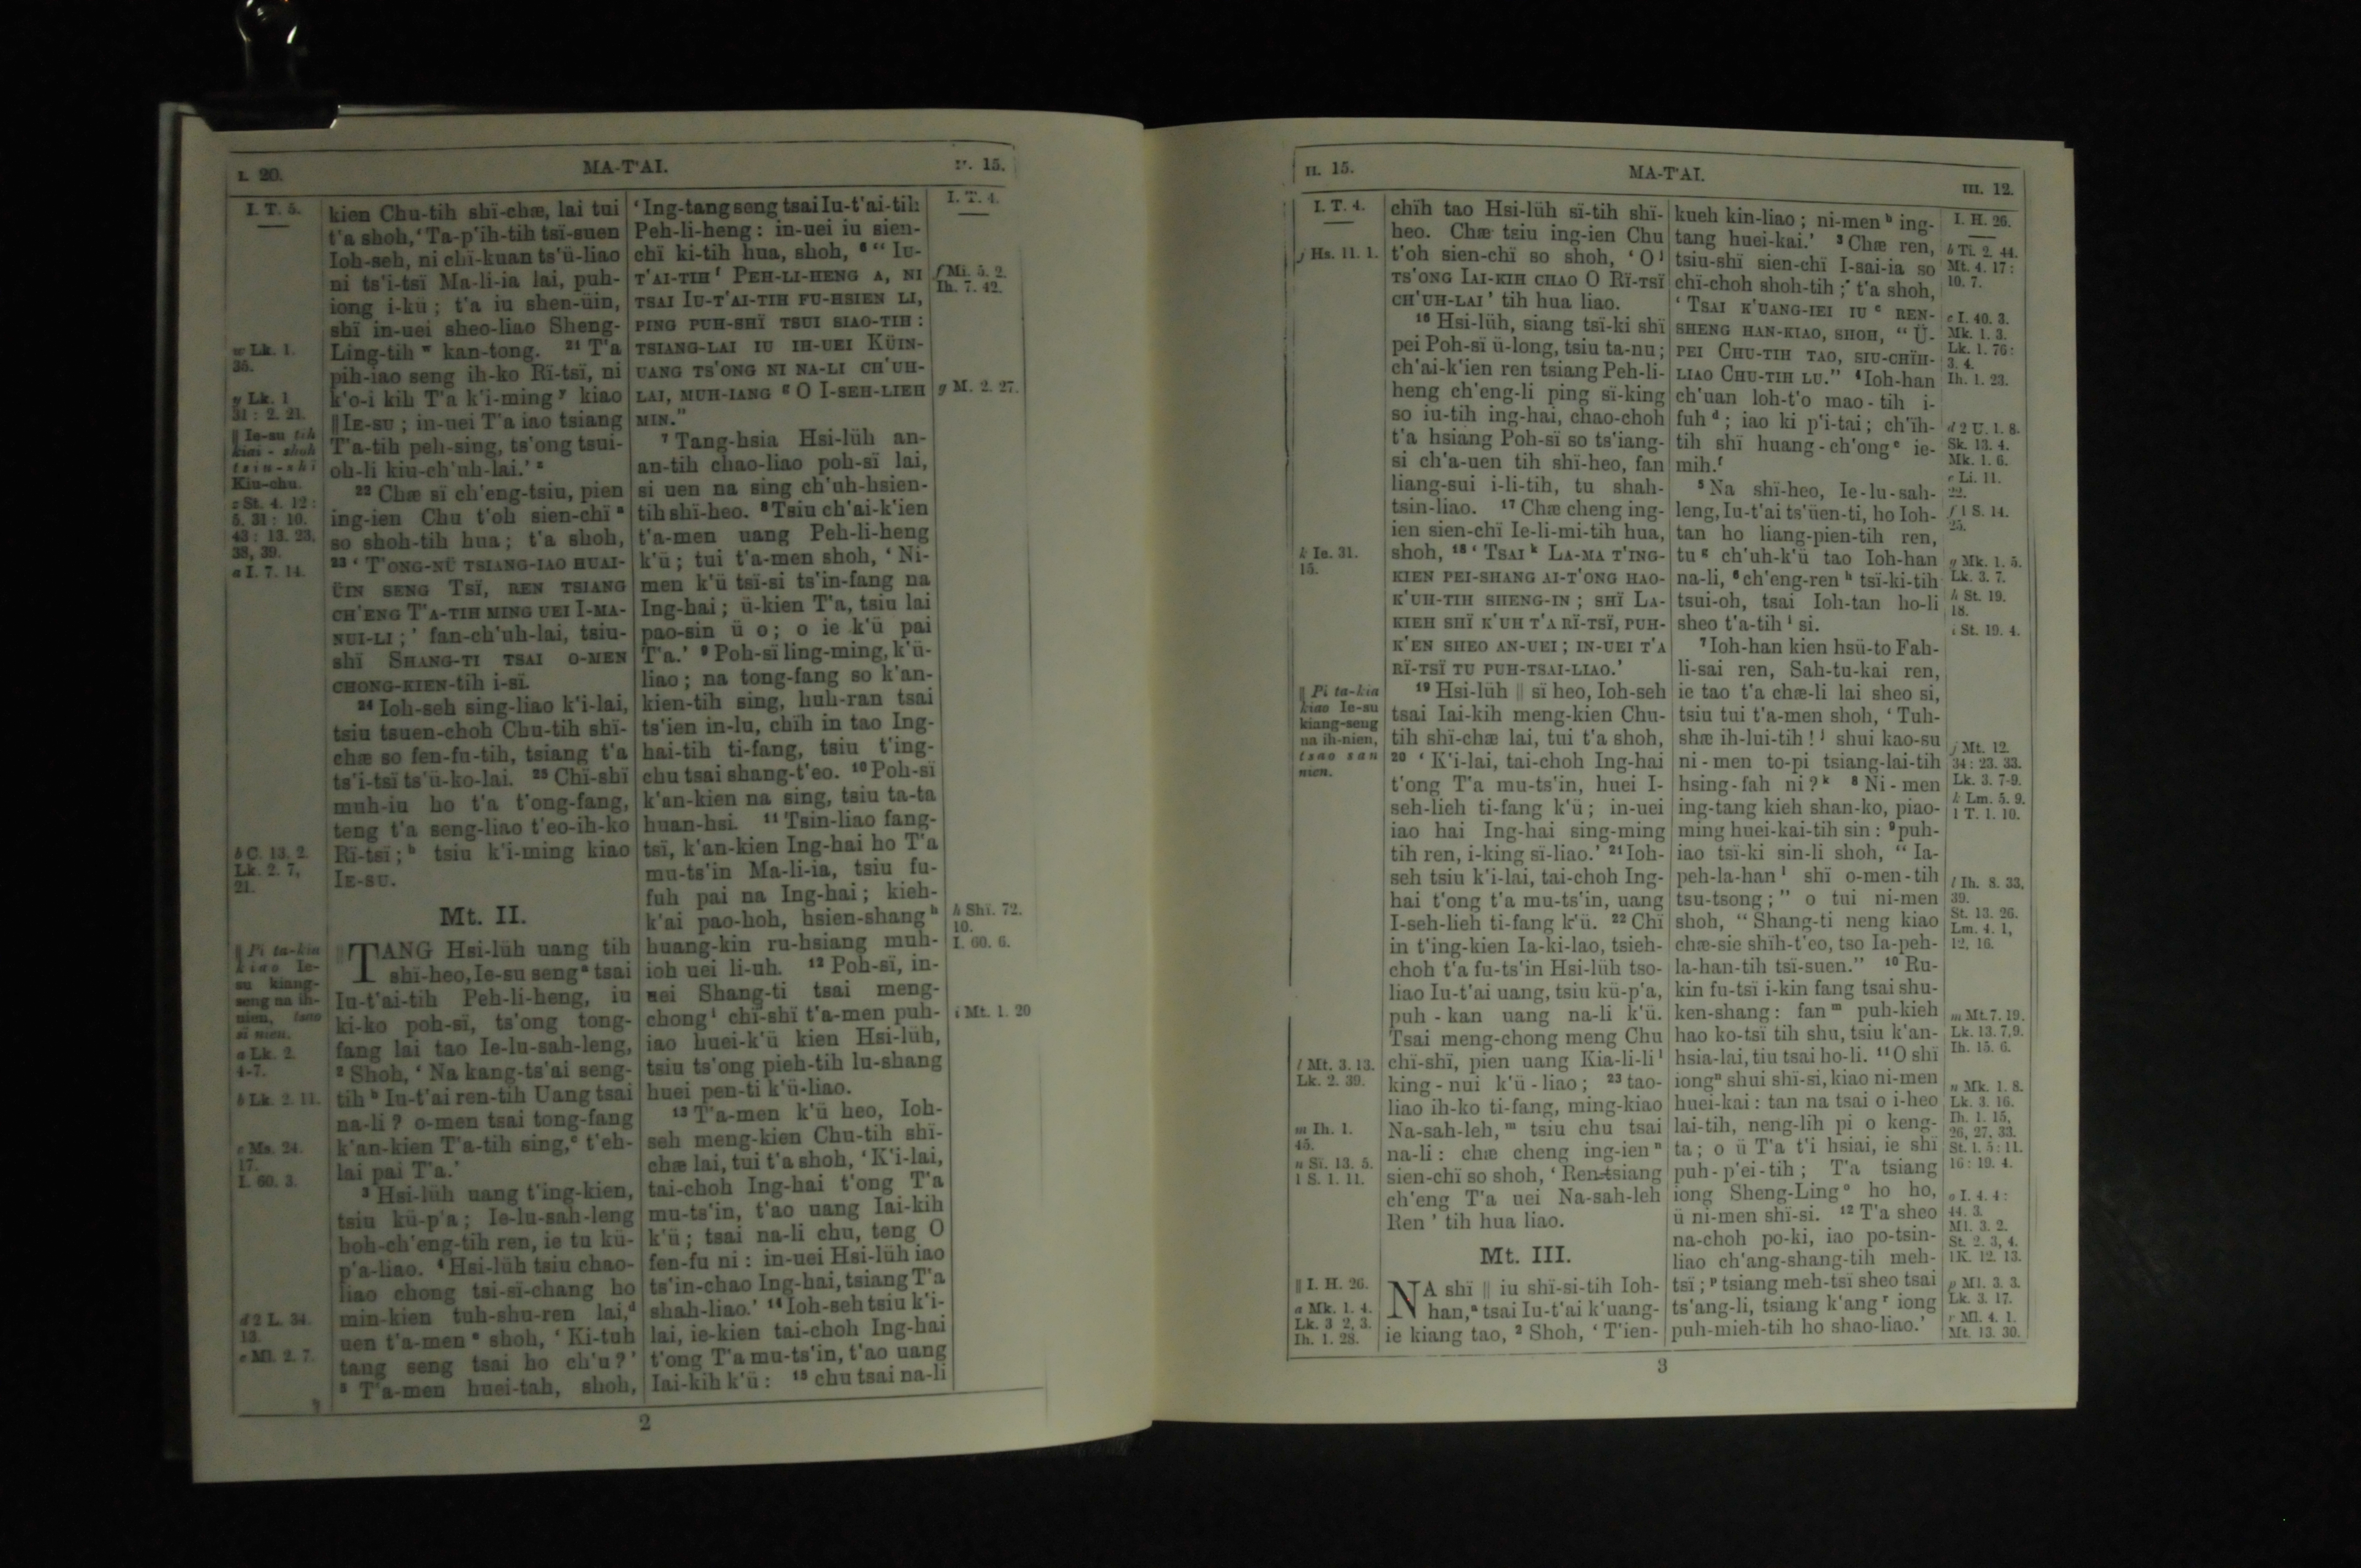 I. 20.
MA-T'AI.
15.
I. T. 5.
w Lk. 1.
35.
y Lk. 1
31 : 2. 21.
‖ Ie-su tih
kiai - shuh
tsiu-shï
Kiu-chu.
z St. 4. 12 :
5. 31 : 10.
43 : 13. 23,
38, 39.
a I. 7. 14.
b C. 13. 2.
Lk. 2. 7,
21.
‖ Pi ta-kia
kiao Ie-
su kiang-
seng na ih-
nien, tsao
sï nien.
a Lk. 2.
4-7.
b Lk. 2. 11.
c Ms. 24.
17.
I. 60. 3.
d 2 L. 34.
13.
e Ml. 2. 7.
kien Chu-tih shï-chæ, lai tui
t'a shoh, ‘Ta-p'ih-tih tsï-suen
Ioh-seh, ni chï-kuan ts'ü-liao
ni ts'i-tsï Ma-li-ia lai, puh-
iong i-kü ; t'a iu shen-üin,
shï in-uei sheo-liao Sheng-
Ling-tih ʷ kan-tong. ²¹ T'a
pih-iao seng ih-ko Rï-tsï, ni
k'o-i kih T'a k'i-ming ʸ kiao
‖ IE-SU ; in-uei T'a iao tsiang
T'a-tih peh-sing, ts'ong tsui-
oh-li kiu-ch'uh-lai.’ ᶻ
²² Chæ sï ch'eng-tsiu, pien
ing-ien Chu t'oh sien-chï ᵃ
so shoh-tih hua ; t'a shoh,
²³ ‘ T'ONG-NÜ TSIANG-IAO HUAI-
ÜIN SENG TSÏ, REN TSIANG
CH'ENG T'A-TIH MING UEI I-MA-
NUI-LI ;’ fan-ch'uh-lai, tsiu-
shï SHANG-TI TSAI O-MEN
CHONG-KIEN-tih i-sï.
²⁴ Ioh-seh sing-liao k'i-lai,
tsiu tsuen-choh Chu-tih shï-
chæ so fen-fu-tih, tsiang t'a
ts'i-tsï ts'ü-ko-lai. ²⁵ Chï-shï
muh-iu ho t'a t'ong-fang,
teng t'a seng-liao t'eo-ih-ko
Rï-tsï ; ᵇ tsiu k'i-ming kiao
IE-SU.
Mt. II.
‖ TANG Hsi-lüh uang tih
shï-heo, Ie-su seng ᵃ tsai
Iu-t'ai-tih Peh-li-heng, iu
ki-ko poh-sï, ts'ong tong-
fang lai tao Ie-lu-sah-leng,
² Shoh, ‘ Na kang-ts'ai seng-
tih ᵇ Iu-t'ai ren-tih Uang tsai
na-li ? o-men tsai tong-fang
k'an-kien T'a-tih sing, ᶜ t'eh-
lai pai T'a.’
³ Hsi-lüh uang t'ing-kien,
tsiu kü-p'a ; Ie-lu-sah-leng
hoh-ch'eng-tih ren, ie tu kü-
p'a-liao. ⁴ Hsi-lüh tsiu chao-
liao chong tsi-sï-chang ho
min-kien tuh-shu-ren lai, ᵈ
uen t'a-men ᵉ shoh, ‘ Ki-tuh
tang seng tsai ho ch'u ?’
⁵ T'a-men huei-tah, shoh,
‘Ing-tang seng tsai Iu-t'ai-tih
Peh-li-heng : in-uei iu sien-
chï ki-tih hua, shoh, ⁶ “ IU-
T'AI-TIH ᶠ PEH-LI-HENG A, NI
TSAI IU-T'AI-TIH FU-HSIEN LI,
PING PUH-SHÏ TSUI SIAO-TIH :
TSIANG-LAI IU IH-UEI KÜIN-
UANG TS'ONG NI NA-LI CH'UH-
LAI, MUH-IANG ᵍ O I-SEH-LIEH
MIN.”
⁷ Tang-hsia Hsi-lüh an-
an-tih chao-liao poh-sï lai,
si uen na sing ch'uh-hsien-
tih shï-heo. ⁸ Tsiu ch'ai-k'ien
t'a-men uang Peh-li-heng
k'ü ; tui t'a-men shoh, ‘ Ni-
men k'ü tsï-si ts'in-fang na
Ing-hai ; ü-kien T'a, tsiu lai
pao-sin ü o ; o ie k'ü pai
T'a.’ ⁹ Poh-sï ling-ming, k'ü-
liao ; na tong-fang so k'an-
kien-tih sing, huh-ran tsai
ts'ien in-lu, chïh in tao Ing-
hai-tih ti-fang, tsiu t'ing-
chu tsai shang-t'eo. ¹⁰ Poh-sï
k'an-kien na sing, tsiu ta-ta
huan-hsi. ¹¹ Tsin-liao fang-
tsï, k'an-kien Ing-hai ho T'a
mu-ts'in Ma-li-ia, tsiu fu-
fuh pai na Ing-hai ; kieh-
k'ai pao-hoh, hsien-shang ʰ
huang-kin ru-hsiang muh-
ioh uei li-uh. ¹² Poh-sï, in-
uei Shang-ti tsai meng-
chong ⁱ chï-shï t'a-men puh-
iao huei-k'ü kien Hsi-lüh,
tsiu ts'ong pieh-tih lu-shang
huei pen-ti k'ü-liao.
¹³ T'a-men k'ü heo, Ioh-
seh meng-kien Chu-tih shï-
chæ lai, tui t'a shoh, ‘K'i-lai,
tai-choh Ing-hai t'ong T'a
mu-ts'in, t'ao uang Iai-kih
k'ü ; tsai na-li chu, teng O
fen-fu ni : in-uei Hsi-lüh iao
ts'in-chao Ing-hai, tsiang T'a
shah-liao.’ ¹⁴ Ioh-seh tsiu k'i-
lai, ie-kien tai-choh Ing-hai
t'ong T'a mu-ts'in, t'ao uang
Iai-kih k'ü : ¹⁵ chu tsai na-li
I. T. 4.
f Mi. 5. 2.
Ih. 7. 42.
g M. 2. 27.
h Shï. 72.
10.
I. 60. 6.
i Mt. 1. 20
2
II. 15.
MA-T'AI.
III. 12.
I. T. 4.
j Hs. 11. 1.
k Ie. 31.
15.
‖ Pi ta-kia
kiao Ie-su
kiang-seng
na ih-nien,
tsao san
nien.
l Mt. 3. 13.
Lk. 2. 39.
m Ih. 1.
45.
n Sï. 13. 5.
1 S. 1. 11.
‖ I. H. 26.
a Mk. 1. 4.
Lk. 3 2, 3.
Ih. 1. 28.
chïh tao Hsi-lüh sï-tih shï-
heo. Chæ tsiu ing-ien Chu
t'oh sien-chï so shoh, ‘ O ʲ
TS'ONG IAI-KIH CHAO O RÏ-TSÏ
CH'UH-LAI ’ tih hua liao.
¹⁶ Hsi-lüh, siang tsï-ki shï
pei Poh-sï ü-long, tsiu ta-nu ;
ch'ai-k'ien ren tsiang Peh-li-
heng ch'eng-li ping sï-king
so iu-tih ing-hai, chao-choh
t'a hsiang Poh-sï so ts'iang-
si ch'a-uen tih shï-heo, fan
liang-sui i-li-tih, tu shah-
tsin-liao. ¹⁷ Chæ cheng ing-
ien sien-chï Ie-li-mi-tih hua,
shoh, ¹⁸ ‘ TSAI ᵏ LA-MA T'ING-
KIEN PEI-SHANG AI-T'ONG HAO-
K'UH-TIH SHENG-IN ; SHÏ LA-
KIEH SHÏ K'UH T'A RÏ-TSÏ, PUH-
K'EN SHEO AN-UEI ; IN-UEI T'A
RÏ-TSÏ TU PUH-TSAI-LIAO.’
¹⁹ Hsi-lüh ‖ sï heo, Ioh-seh
tsai Iai-kih meng-kien Chu-
tih shï-chæ lai, tui t'a shoh,
²⁰ ‘ K'i-lai, tai-choh Ing-hai
t'ong T'a mu-ts'in, huei I-
seh-lieh ti-fang k'ü ; in-uei
iao hai Ing-hai sing-ming
tih ren, i-king sï-liao.’ ²¹ Ioh-
seh tsiu k'i-lai, tai-choh Ing-
hai t'ong t'a mu-ts'in, uang
I-seh-lieh ti-fang k'ü. ²² Chï
in t'ing-kien Ia-ki-lao, tsieh-
choh t'a fu-ts'in Hsi-lüh tso-
liao Iu-t'ai uang, tsiu kü-p'a,
puh - kan uang na-li k'ü.
Tsai meng-chong meng Chu
chï-shï, pien uang Kia-li-li ˡ
king - nui k'ü - liao ; ²³ tao-
liao ih-ko ti-fang, ming-kiao
Na-sah-leh, ᵐ tsiu chu tsai
na-li : chæ cheng ing-ien ⁿ
sien-chï so shoh, ‘ Ren-tsiang
ch'eng T'a uei Na-sah-leh
Ren ’ tih hua liao.
Mt. III.
NA shï ‖ iu shï-si-tih Ioh-
han, ᵃ tsai Iu-t'ai k'uang-
ie kiang tao, ² Shoh, ‘ T'ien-
kueh kin-liao ; ni-men ᵇ ing-
tang huei-kai.’ ³ Chæ ren,
tsiu-shï sien-chï I-sai-ia so
chï-choh shoh-tih ; t'a shoh,
‘ TSAI K'UANG-IEI IU ᶜ REN-
SHENG HAN-KIAO, SHOH, “ Ü-
PEI CHU-TIH TAO, SIU-CHÏH-
LIAO CHU-TIH LU.” ⁴ Ioh-han
ch'uan loh-t'o mao - tih i-
fuh ᵈ ; iao ki p'i-tai ; ch'ïh-
tih shï huang - ch'ong ᵉ ie-
mih. ᶠ
⁵ Na shï-heo, Ie-lu-sah-
leng, Iu-t'ai ts'üen-ti, ho Ioh-
tan ho liang-pien-tih ren,
tu ᵍ ch'uh-k'ü tao Ioh-han
na-li, ⁶ ch'eng-ren ʰ tsï-ki-tih
tsui-oh, tsai Ioh-tan ho-li
sheo t'a-tih ⁱ si.
⁷ Ioh-han kien hsü-to Fah-
li-sai ren, Sah-tu-kai ren,
ie tao t'a chæ-li lai sheo si,
tsiu tui t'a-men shoh, ‘ Tuh-
shæ ih-lui-tih ! ʲ shui kao-su
ni - men to-pi tsiang-lai-tih
hsing - fah ni ? ᵏ ⁸ Ni - men
ing-tang kieh shan-ko, piao-
ming huei-kai-tih sin : ⁹ puh-
iao tsï-ki sin-li shoh, “ Ia-
peh-la-han ˡ shï o-men-tih
tsu-tsong ; ” o tui ni-men
shoh, “ Shang-ti neng kiao
chæ-sie shïh-t'eo, tso Ia-peh-
la-han-tih tsï-suen.” ¹⁰ Ru-
kin fu-tsï i-kin fang tsai shu-
ken-shang : fan ᵐ puh-kieh
hao ko-tsï tih shu, tsiu k'an-
hsia-lai, tiu tsai ho-li. ¹¹ O shï
iong ⁿ shui shï-si, kiao ni-men
huei-kai : tan na tsai o i-heo
lai-tih, neng-lih pi o keng-
ta ; o ü T'a t'i hsiai, ie shï
puh - p'ei - tih ; T'a tsiang
iong Sheng-Ling ᵒ ho ho,
ü ni-men shï-si. ¹² T'a sheo
na-choh po-ki, iao po-tsin-
liao ch'ang-shang-tih meh-
tsï ; ᵖ tsiang meh-tsï sheo tsai
ts'ang-li, tsiang k'ang ʳ iong
puh-mieh-tih ho shao-liao.’
I. H. 26.
b Ti. 2. 44.
Mt. 4. 17 :
10. 7.
c I. 40. 3.
Mk. 1. 3.
Lk. 1. 76 :
3. 4.
Ih. 1. 23.
d 2 U. 1. 8.
Sk. 13. 4.
Mk. 1. 6.
e Li. 11.
22.
f 1 S. 14.
25.
g Mk. 1. 5.
Lk. 3. 7.
h St. 19.
18.
i St. 19. 4.
j Mt. 12.
34 : 23. 33.
Lk. 3. 7-9.
k Lm. 5. 9.
1 T. 1. 10.
l Ih. 8. 33,
39.
St. 13. 26.
Lm. 4. 1,
12, 16.
m Mt. 7. 19.
Lk. 13. 7, 9.
Ih. 15. 6.
n Mk. 1. 8.
Lk. 3. 16.
Ih. 1. 15,
26, 27, 33.
St. 1. 5 : 11.
16 : 19. 4.
o I. 4. 4 :
44. 3.
Ml. 3. 2.
St. 2. 3, 4.
1 K. 12. 13.
p Ml. 3. 3.
Lk. 3. 17.
r Ml. 4. 1.
Mt. 13. 30.
3